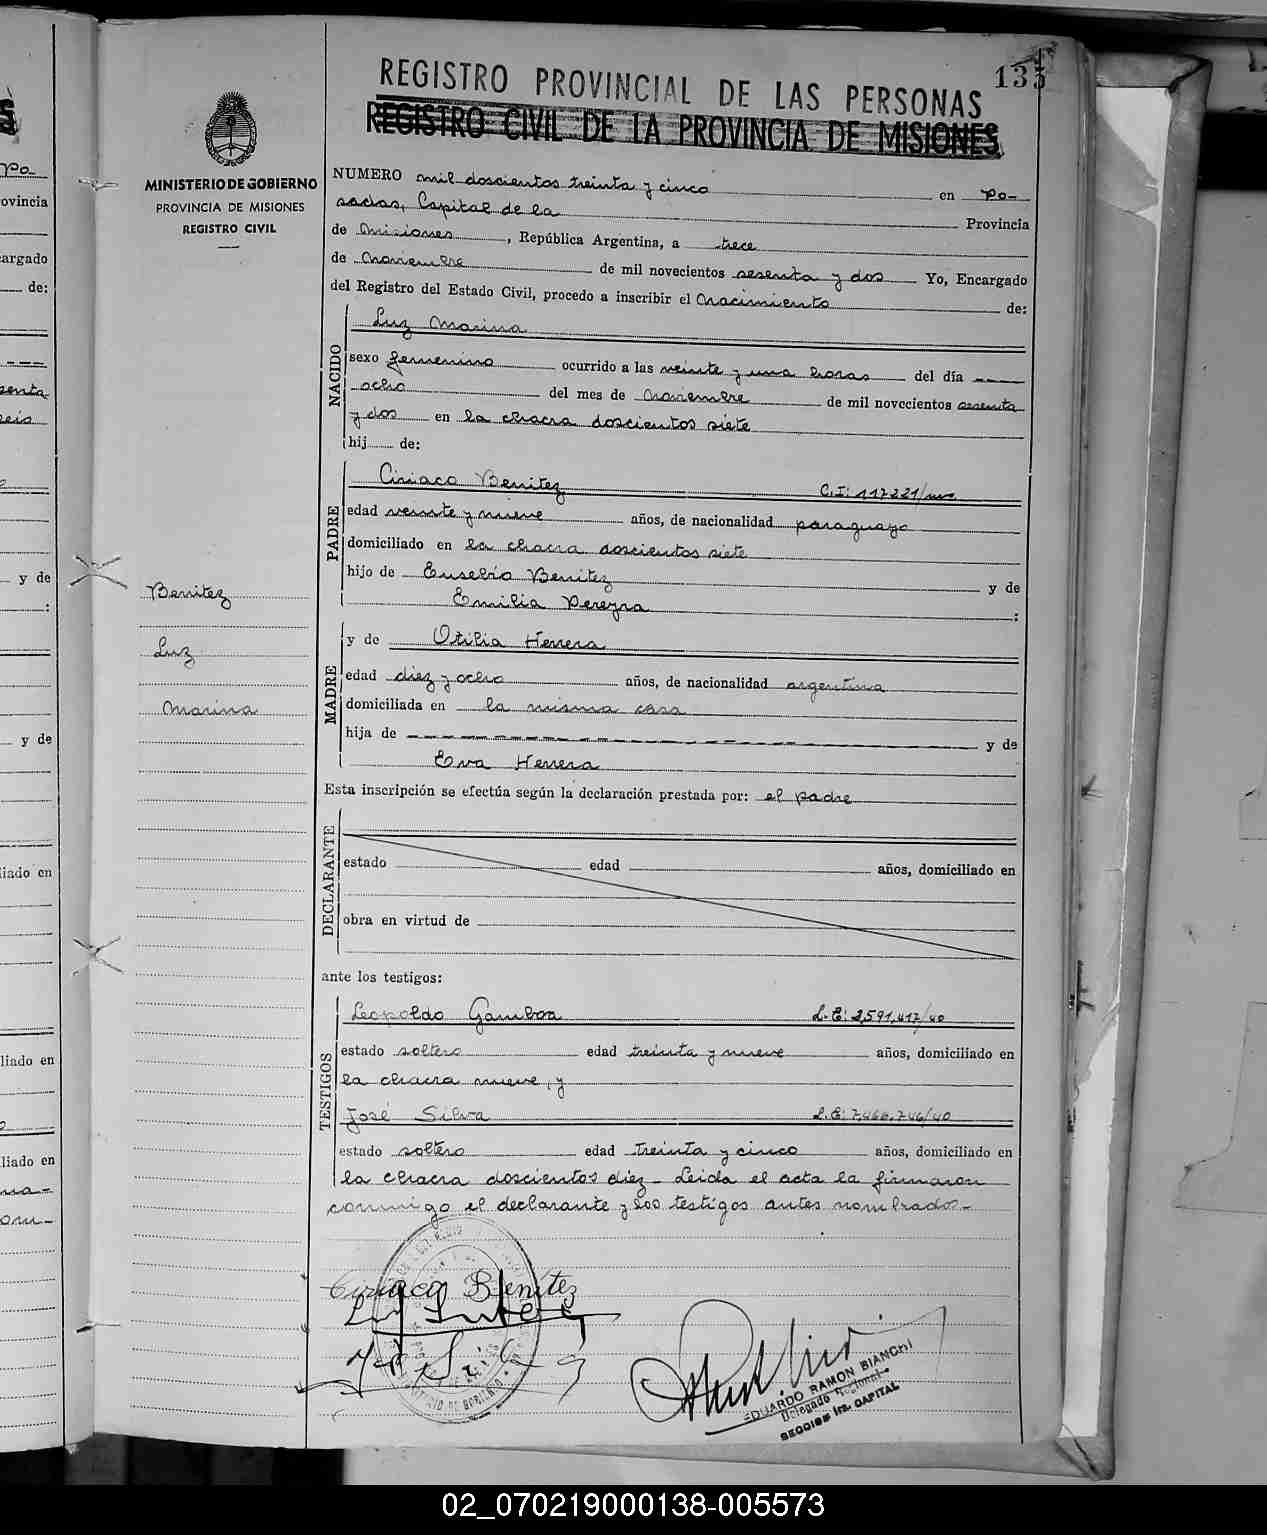 135
REGISTRO PROVINCIAL DE LAS PERSONAS
REGISTRO CIVIL DE LA PROVINCIA DE MISIONES
MINISTERIO DE GOBIERNO
PROVINCIA DE MISIONES
REGISTRO CIVIL
NUMERO mil doscientos treinta y cinco en Po-
sadas, Capital de la Provincia
de Misiones, República Argentina, a trece
de Noviembre de mil novecientos sesenta y dos Yo, Encargado
del Registro del Estado Civil, procedo a inscribir el Nacimiento de:
NACIDO
Luz Marina
sexo femenino ocurrido a las veinte y una horas del día ----
ocho del mes de Noviembre de mil novecientos sesenta
y dos en la chacra doscientos siete
hij de:
PADRE
Ciriaco Benitez C.I: 117221/
edad veinte y nueve años, de nacionalidad paraguayo
domiciliado en la chacra doscientos siete
hijo de Eusebio Benitez y de
Emilia Pereyra :
MADRE
y de Otilia Herrera
edad diez y ocho años, de nacionalidad argentina
domiciliada en la misma casa
hija de ---------------- y de
Eva Herrera
Benitez
Luz
Marina
Esta inscripción se efectúa según la declaración prestada por: el padre
DECLARANTE
estado edad años, domiciliado en
obra en virtud de
ante los testigos:
TESTIGOS
Leopoldo Gamboa L.E: 2,591,417/40
estado soltero edad treinta y nueve años, domiciliado en
la chacra nueve, y
José Silva L.E: 7,466.746/40
estado soltero edad treinta y cinco años, domiciliado en
la chacra doscientos diez_ Leida el acta la firmaron
conmigo el declarante y los testigos antes nombrados_
Ciriaco Benítez
EDUARDO RAMON BIANCHI
Delegado Regional
SECCION 1ra. CAPITAL
Po-
ovincia
cargado
de:
senta
seis
y de
:
y de
liado en
liado en
liado en
02_070219000138-005573